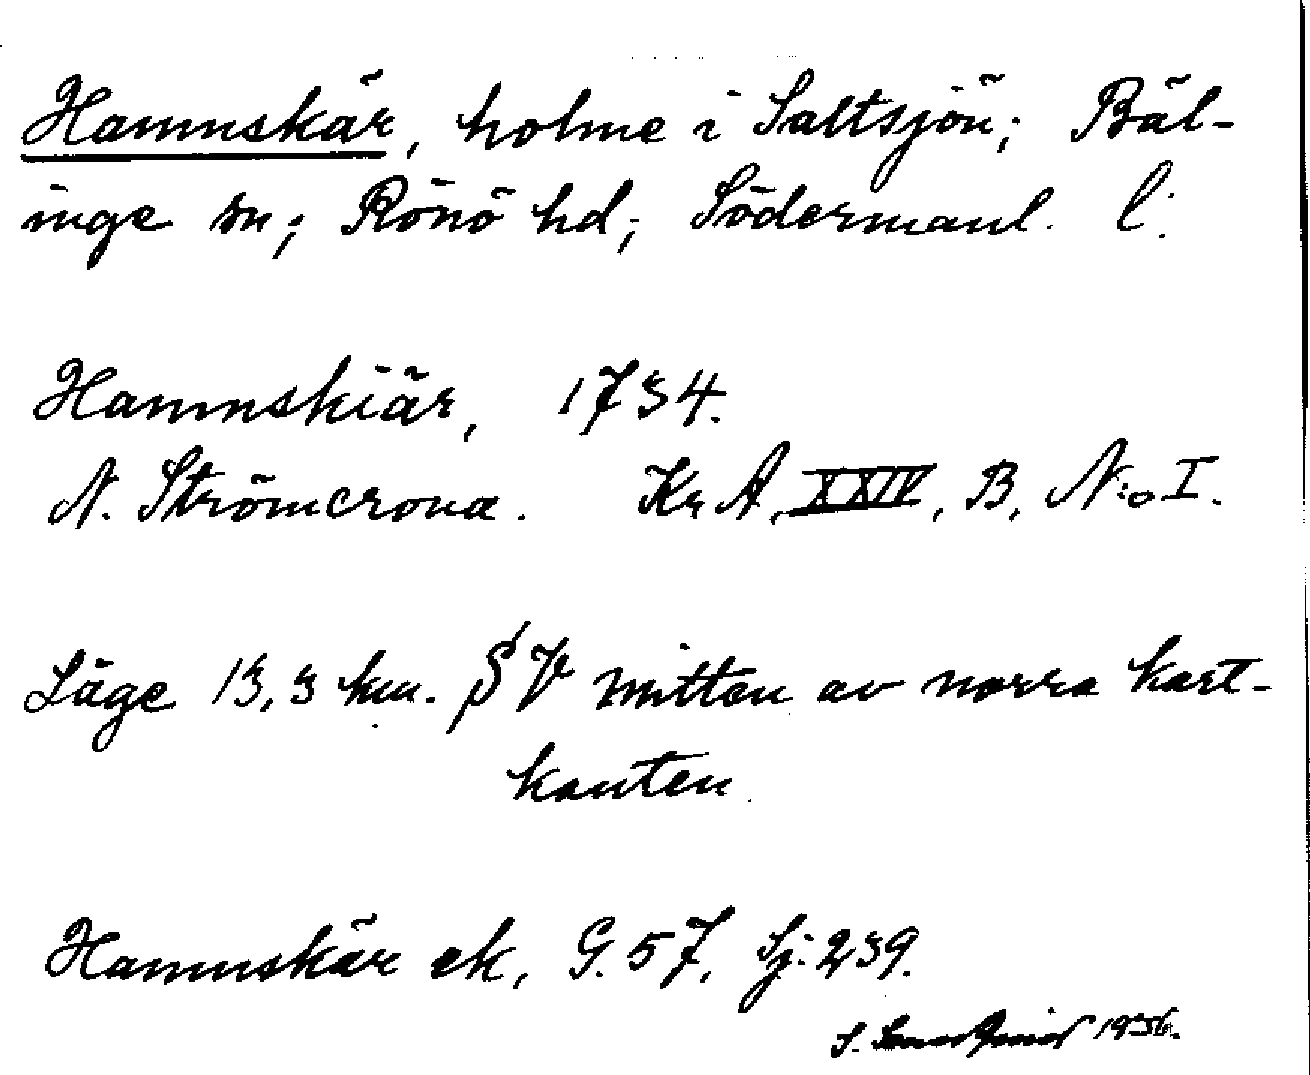 Hamnskär, holme i Saltsjön; Bäl-
inge sn; Rönö hd; Södermanl. l:
Hamnskiär, 1734.
N. Strömcrona. Kr A, XXIV, B, N:o I.
Läge 13,3 km. S V mitten av norra kart-
kanten
Hamnskär ek, G. 57, Sj: 239.
S. 1936.